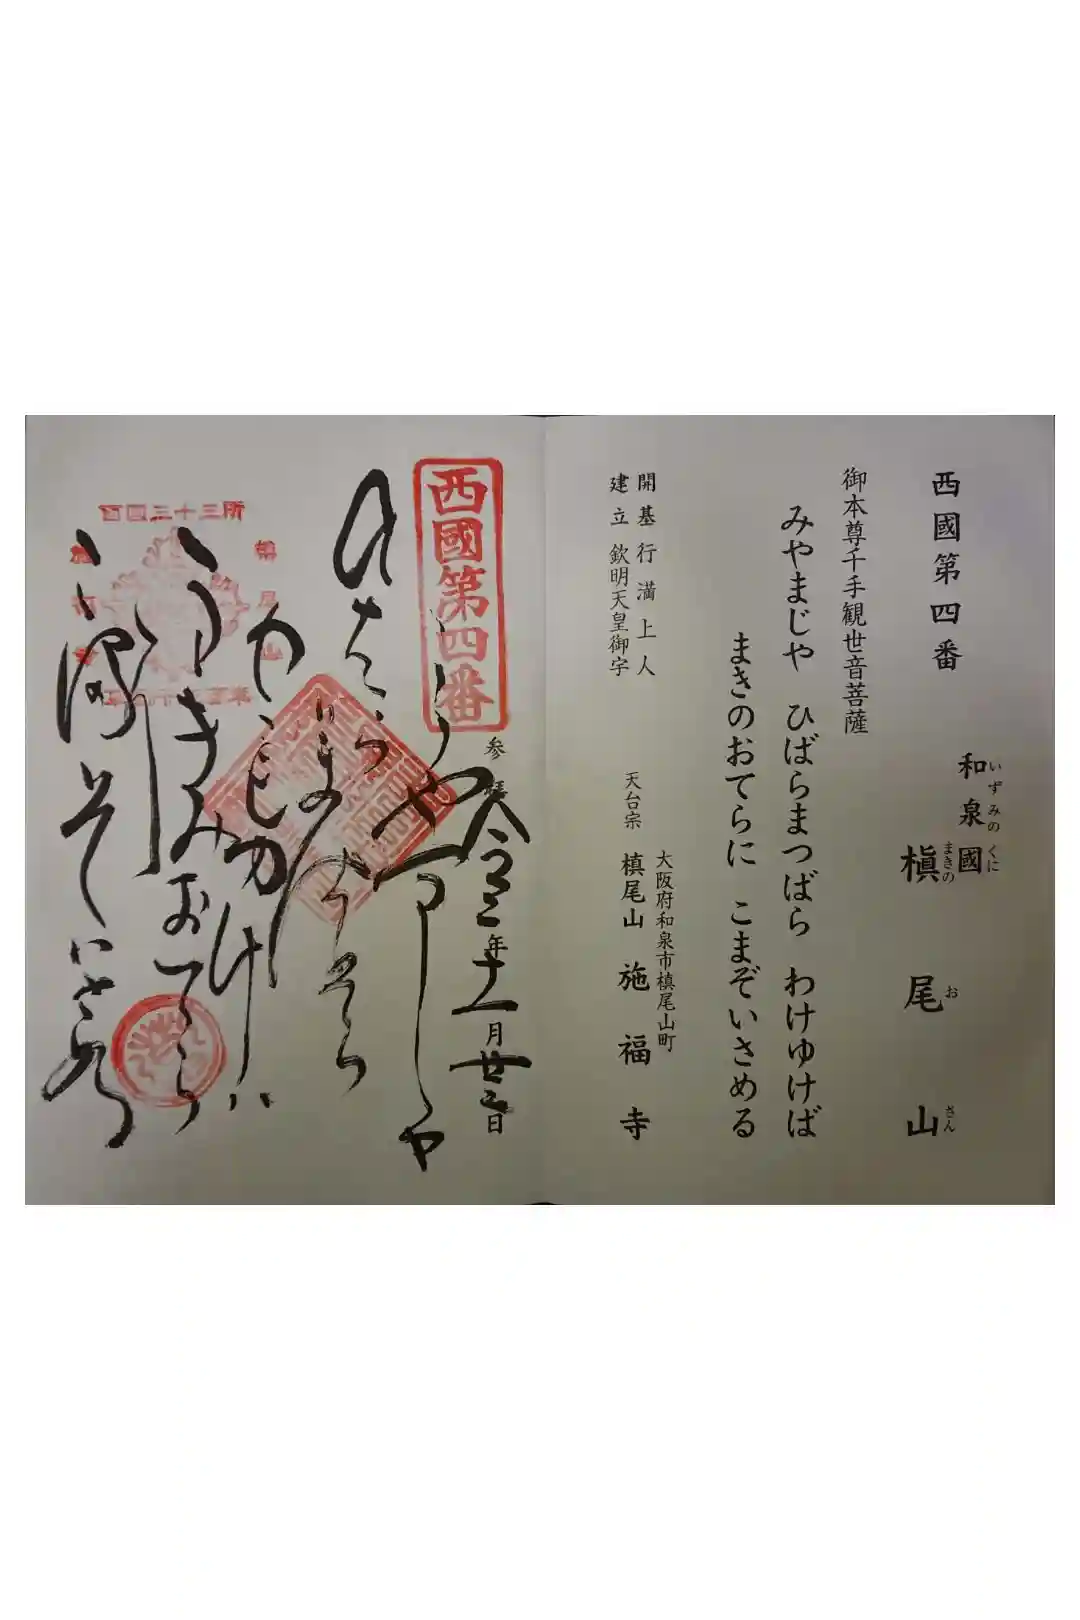 西國第四番
和泉國
いずみのくに
槇尾山
まきのおさん
御本尊千手観世音菩薩
みやまじや ひばらまつばら わけゆけば
まきのおてらに こまぞいさめる
大阪府和泉市槙尾山町
天台宗 槙尾山 施福寺
開基 行満上人
建立 欽明天皇御宇
参拝 令三年十一月廿三日
西國第四番
みやましや
ひはらまつはら
わけゆけは
まきのおてらに
こまそいさめる
西国三十三所
槇尾山